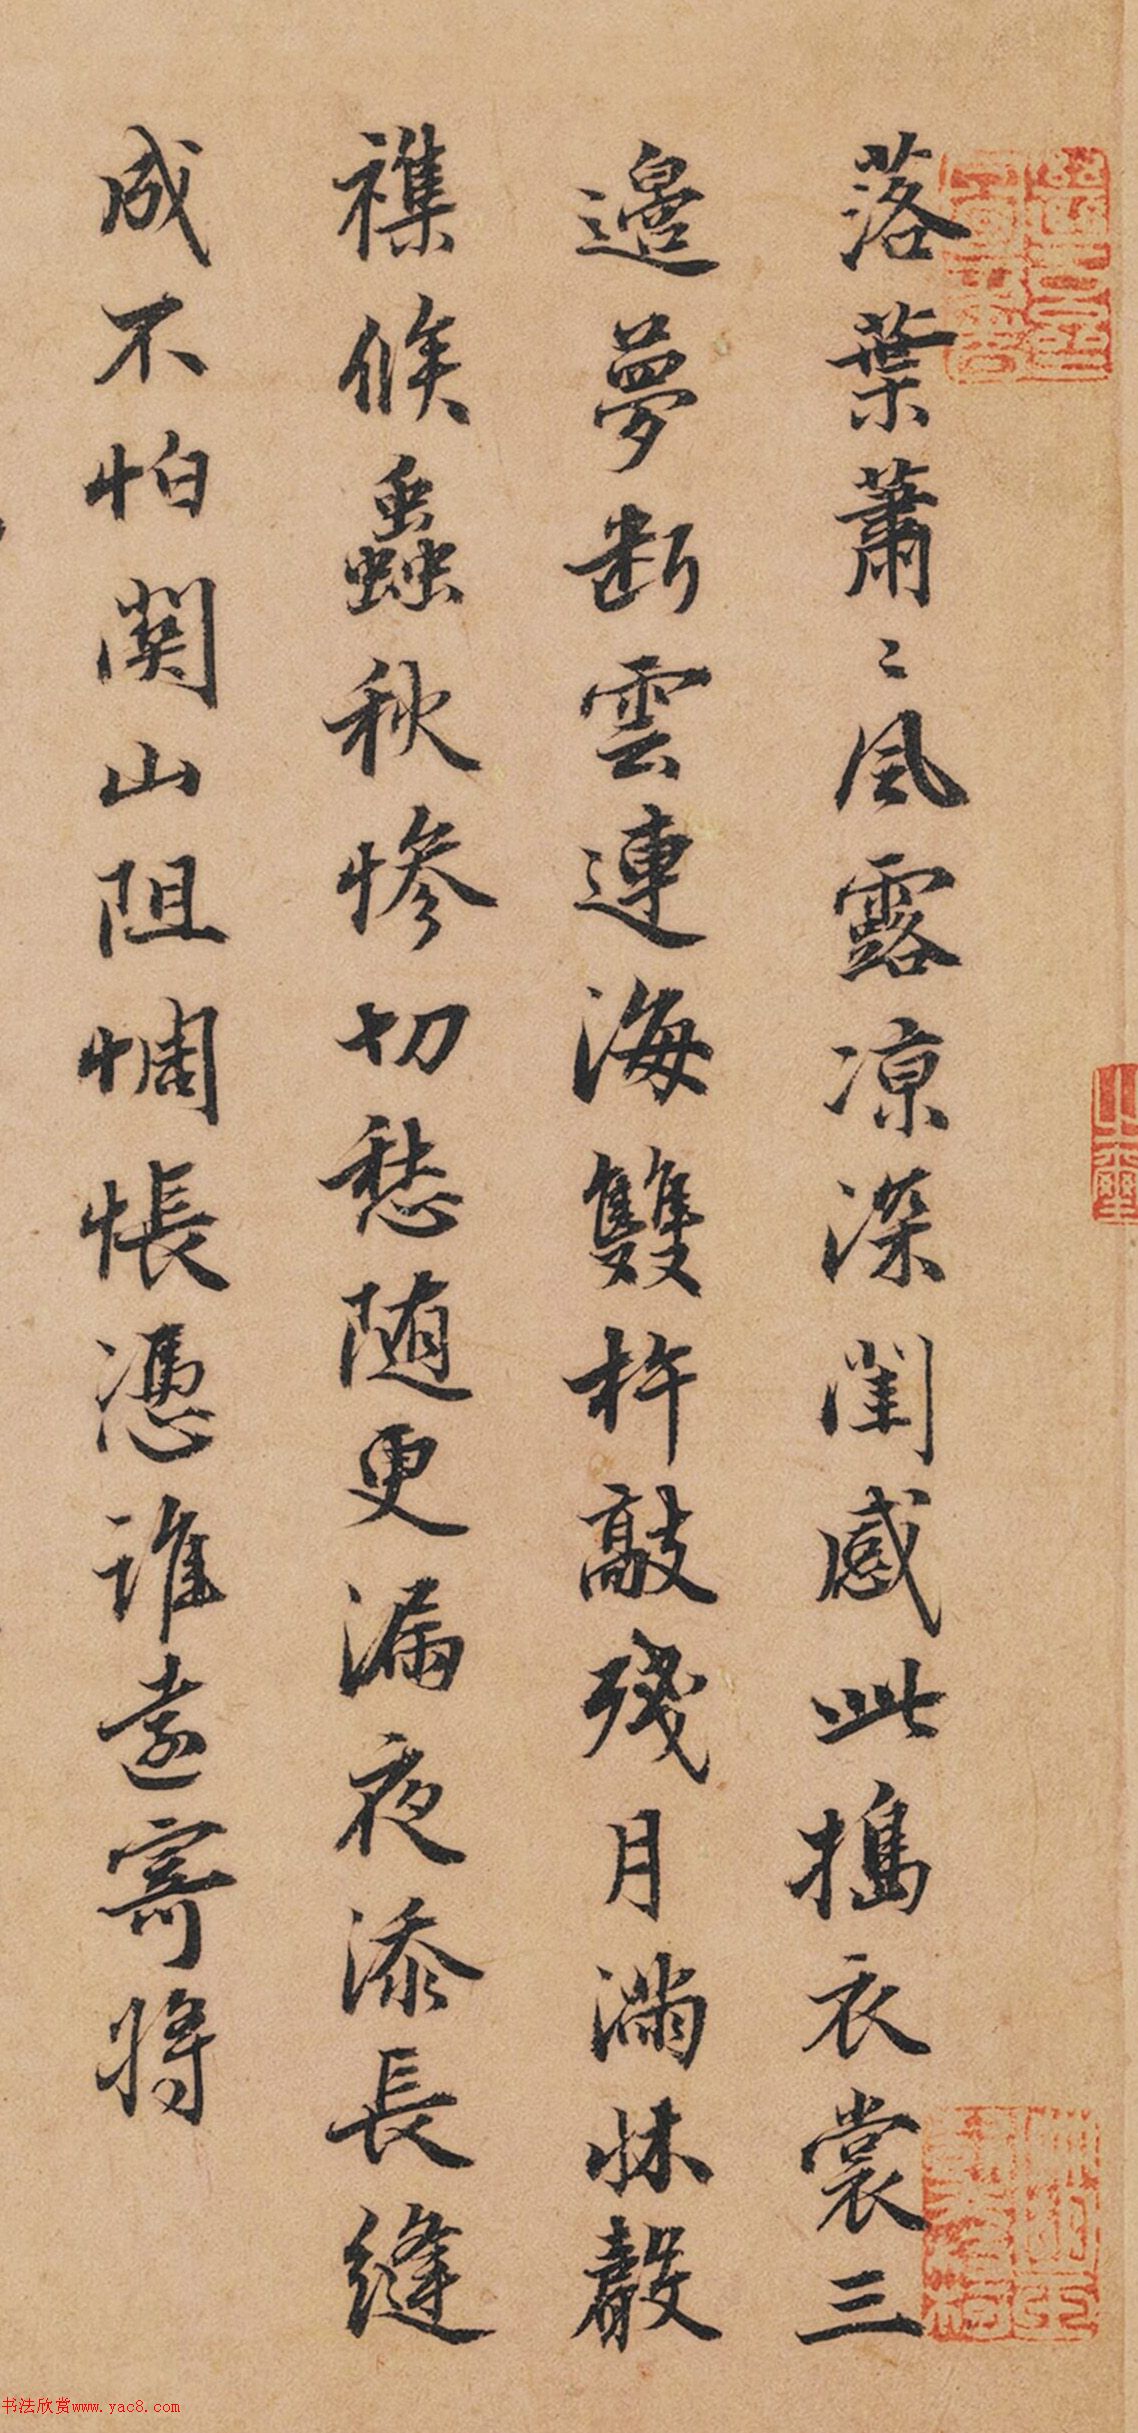 落葉蕭〻風露涼深閨感此搗衣裳三
邊夢斷雲連海雙杵敲殘月滿牀聲
襍候蟲秋慘切愁隨更漏夜添長縫
成不怕關山阻惆悵憑誰遠寄將
书法欣赏www.yac8.com